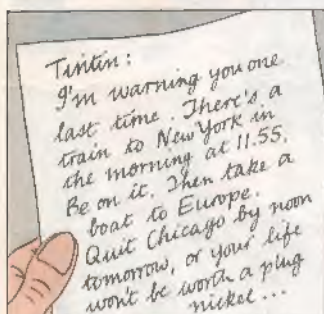 Tintin :
I'm warning you one
last time. There's a
train to New York in
the morning at 11.55.
Be on it. Then take a
boat to Europe.
Quit Chicago by noon
tomorrow, or your life
won't be worth a plug
nickel ...